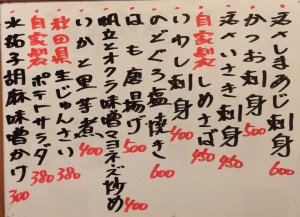 活〆しまあじ刺身 600
かつお刺身 500
活〆いさき刺身 450
自家製しめさば 450
いわし刺身 400
のどぐろ塩焼き 600
はも唐揚げ 500
帆立とオクラ味噌マヨネーズ炒め 400
いかと里芋煮 400
秋田県生じゅんさい 380
自家製ポテトサラダ 380
水茄子胡麻味噌かけ 300